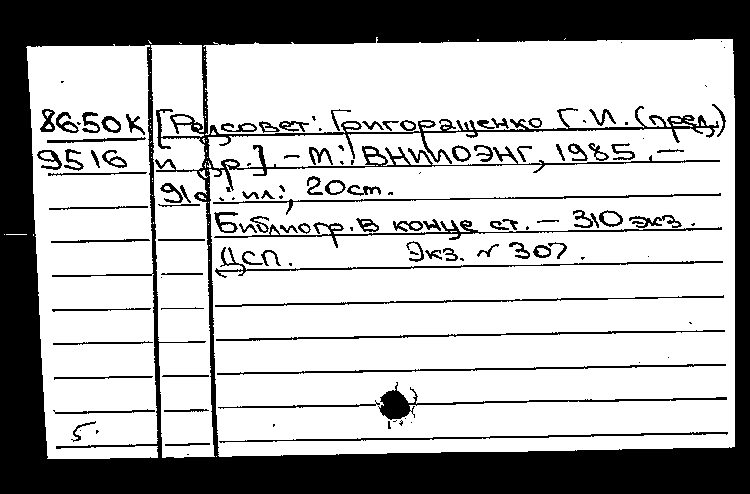 86-50К [Редсовет: Григоращенко Г.И. (пред.)
9516 и др.]. - М.: ВНИИОЭНГ, 1985. -
91с.: ил.; 20см.
Библиогр. в конце ст. - 310 экз.
ДСП. Экз. N 307.
5.